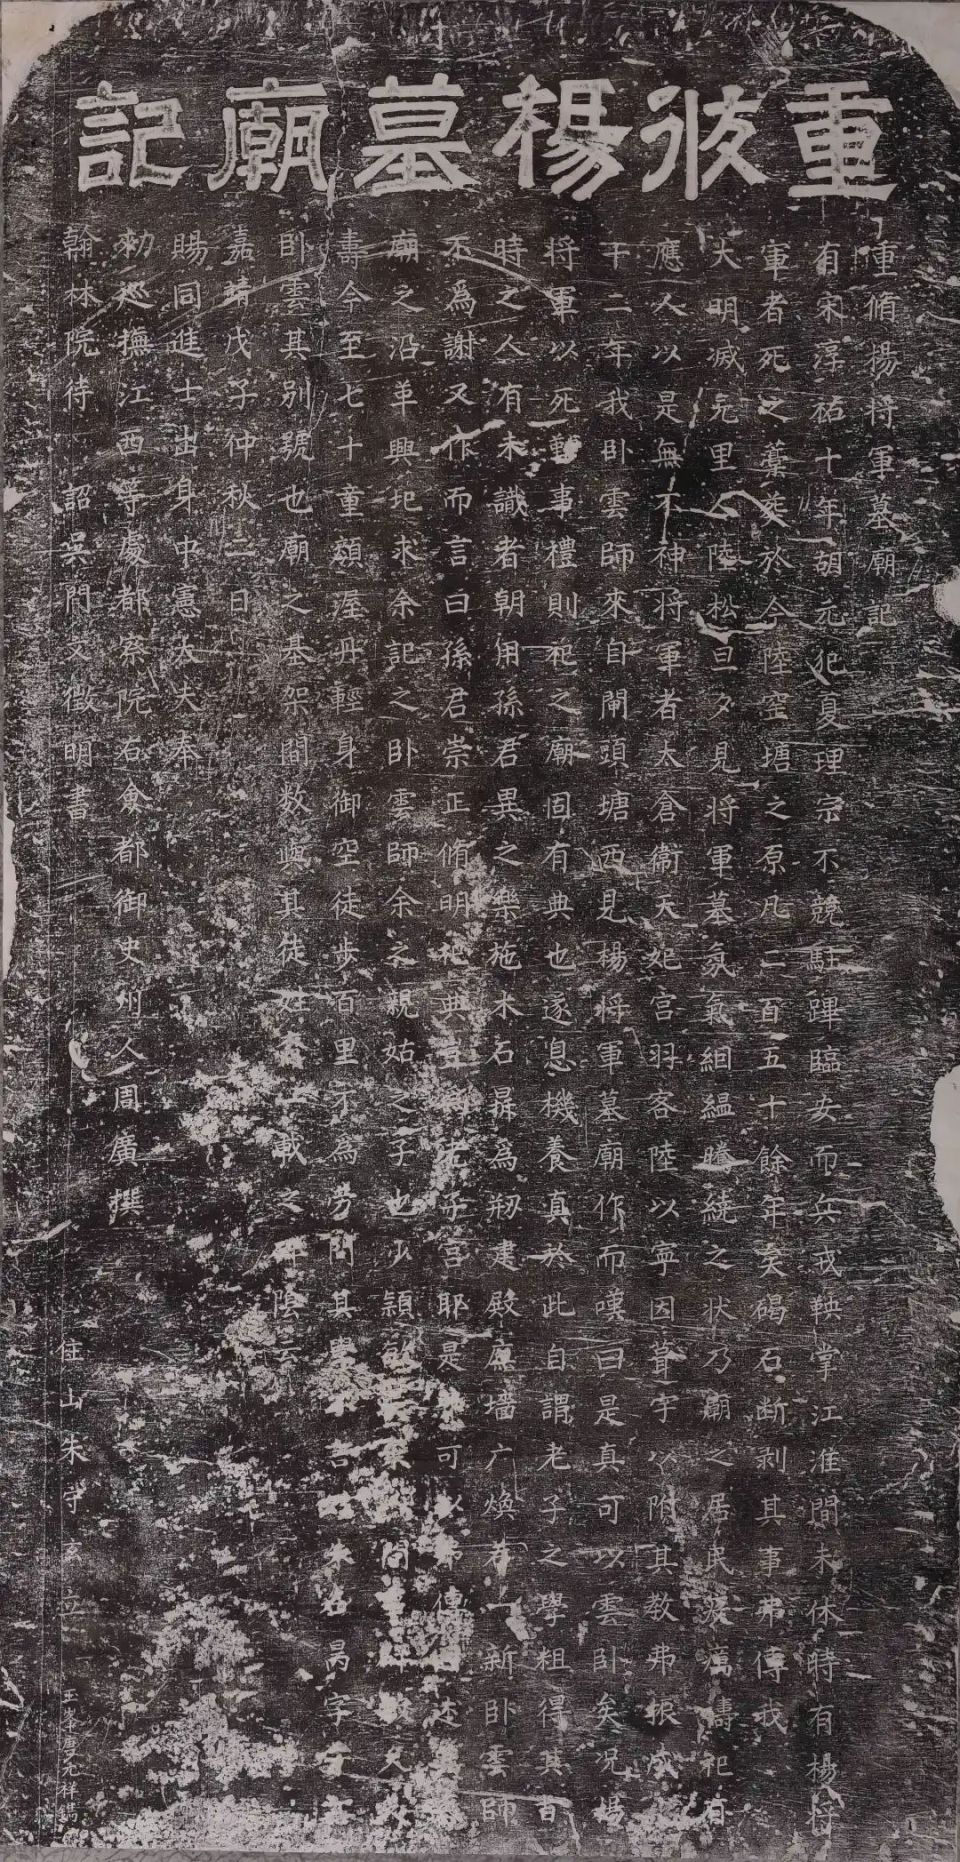 重修楊墓廟記
重脩楊将軍墓廟記
有宋淳祐十年胡元犯夏理宗不競駐蹕臨安而兵戎鞅掌江淮間未休時有楊将
軍者死之藁葬於今陸窑塘之原凡二百五十餘年矣碣石断剥其事弗傳我
大明滅元里人陸松旦夕見将軍墓氛氣絪縕騰繞之状乃廟之居民疫癘禱祀有
應人以是無不神将軍者太倉衛天妃宫羽客陸以寧因葺宇以附其教弗振成
十二年我卧雲師來自閘頭塘西見楊将軍墓廟作而嘆曰是真可以雲卧矣况楊
将軍以死勤事禮則祀之廟固有典也遂息機養真於此自謂老子之學粗得其
時之人有未識者朝用孫君異之樂施木石昇為剏建殿廡墻广煥若一新卧雲師
不為謝又作而言曰孫君崇正脩明祀典豈為老子宫耶是可以傳述
廟之沿革興圯求余記之卧雲師余之親姑之子也少穎敏同
壽今至七十童顔渥丹輕身御空徒步百里不為劳問其号名昺字
卧雲其别號也廟之基架間数與其徒姓者載之碑陰云
嘉靖戊子仲秋二日
賜同進士出身中憲大夫奉
勑廵撫江西等處都察院右僉都御史州人周廣撰
翰林院待詔吳門文徵明書 住山朱守玄立 玉峯唐元祥鐫